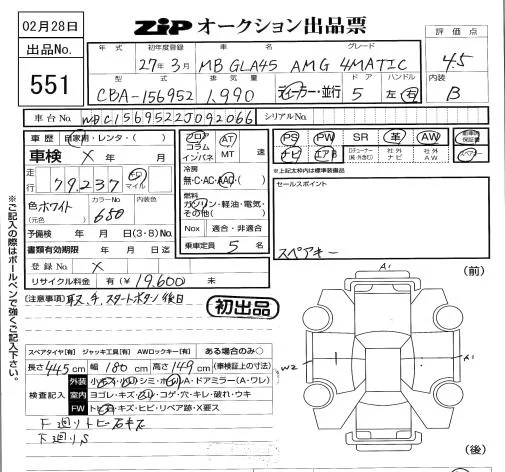 02月28日
ZIP オークション出品票
出品No.
551
評価点
4.5
内装
B
年式 初年度登録 車名 グレード
27年3月 MB GLA45 AMG 4MATIC
型式 排気量 ドア ハンドル
CBA-156952 1,990 ディーラー・並行 5 左 右
車台No. WDC1569522J092066 シリアルNo.
車歴 自家用・レンタ・( )
車検 × 年 月
走行 79,237 km マイル
色 ホワイト カラーNo. 650 内装色
(元色)
予備検 年 月 日(3・8)No.
書類有効期限 年 月 日迄
登録No. ×
リサイクル料金 有(¥ 19,600) 未
フロア コラム インパネ AT MT 速
冷房
無・C・AC・AAC・( )
燃料
ガソリン・軽油・電気・その他( )
Nox 適合・非適合
乗車定員 5 名
PS PW SR 革 AW
ナビ エアB 社外ナビ 社外AW
スペアキー
*上記太枠内は標準装備品
セールスポイント
スペアキー
(注意事項) 取説、スタートボタン後日
初出品
※ご記入の際はボールペンで強くご記入下さい。
スペアタイヤ[有] ジャッキ工具[有] AWロックキー[有] ある場合のみ○
長さ 445 cm 幅 180 cm 高さ 149 cm (車検証上の寸法)
検査記入
外装 小キズ・小凹・シミ・ホイルA・ドアミラー(A・ワレ)
室内 ヨゴレ・キズ・スレ・コゲ・穴・キレ・破れ・ウキ
FW トビ石・キズ・ヒビ・リペア跡・X要ス
F廻りトビ石キズ
下廻りS
(前)
A1
W2
A1
(後)